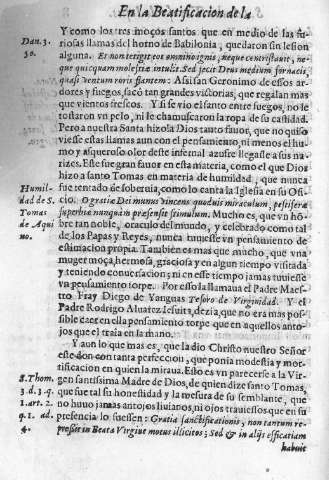 En la Beatificacion de la
Y como los tres moços santos que en medio de las fu-
riosas llamas del horno de Babilonia, quedaron sin lesion
Dan. 3.
50.
alguna. Et non tetigit eos omnino ignis, neque contristauit, ne-
que quicquam molestiæ intulit. Sed fecit Deus medium fornacis,
quasi ventum roris flantem: Assi san Geronimo de essos ar-
dores y fuegos, sacò tan grandes victorias, que regalan mas
que vientos frescos. Y si se vio el santo entre fuegos, no le
tostaron vn pelo, ni le chamuscaron la ropa de su castidad.
Pero a nuestra Santa hizola Dios tanto fauor, que no quiso
viesse estas llamas aun con el pensamiento, ni menos el hu-
mo y asqueroso olor deste infernal azufre llegasse a sus na-
rizes. Este fue gran fauor en esta materia, como el que Dios
hizo a santo Tomas en materia de humildad, que nunca
Humil-
dad de S.
Tomas
de Aqui
no.
fue tentado de soberuia, como lo canta la Iglesia en su Ofi-
cio. O gratiæ Dei munus vincens quoduis miraculum, pestiferæ
superbiæ nunquàm præsensit stimulum. Mucho es, que vn hõ-
bre tan noble, oraculo del mundo, y celebrado como tal
de los Papas y Reyes, nunca tuuiesse vn pensamiento de
estimacion propia. Tambien es mas que mucho, que vna
muger moça, hermosa, graciosa y en algun tiempo visitada
y teniendo conuersacion; ni en esse tiempo jamas tuuiesse
vn pensamiento torpe. Por esso la llamaua el Padre Maes-
tro Fray Diego de Yanguas Tesoro de Virginidad. Y el
Padre Rodrigo Aluarez Iesuita, dezia, que no era mas pos-
sible caer en ella pensamiento torpe que en aquellos anto-
jos que el traia en la mano.
Y aun lo que mas es, que la dio Christo nuestro Señor
este don con tanta perfeccion, que ponia modestia y mor-
tificacion en quien la miraua. Esto es vn parecerse a la Vir-
S. Thom.
3. d. 3. q.
1. art. 2.
q. 1. ad.
4.
gen santissima Madre de Dios, de quien dize santo Tomas,
que fue tal su honestidad y la mesura de su semblante, que
no huuo jamas antojos liuianos, ni ojos trauiessos que en su
presencia lo fuessen: Gratia sanctificationis, non tantum re-
pressit in Beata Virgine motus illicitos; Sed & in alijs efficatiam
habuit